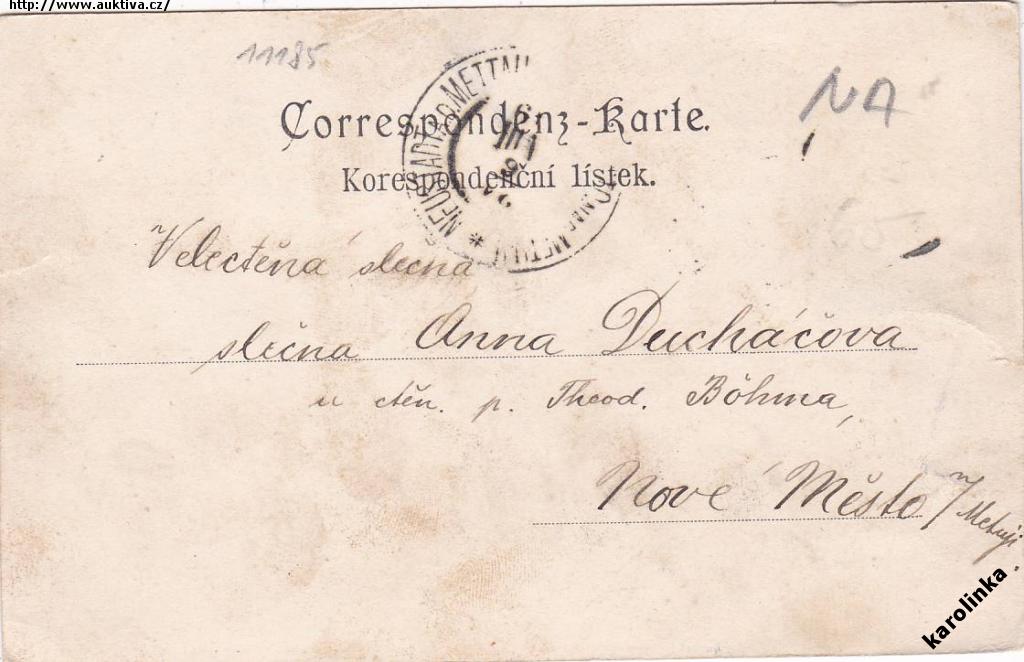 http://www.auktiva.cz/
11185
NA
Correspondenz-Karte.
Korespondenční lístek.
NEUSTADT a.d. METTAU *
Velectěná slečna
slečna Anna Ducháčova
u ctěn. p. Theod. Böhma,
Nové Město n/Metují.
karolinka